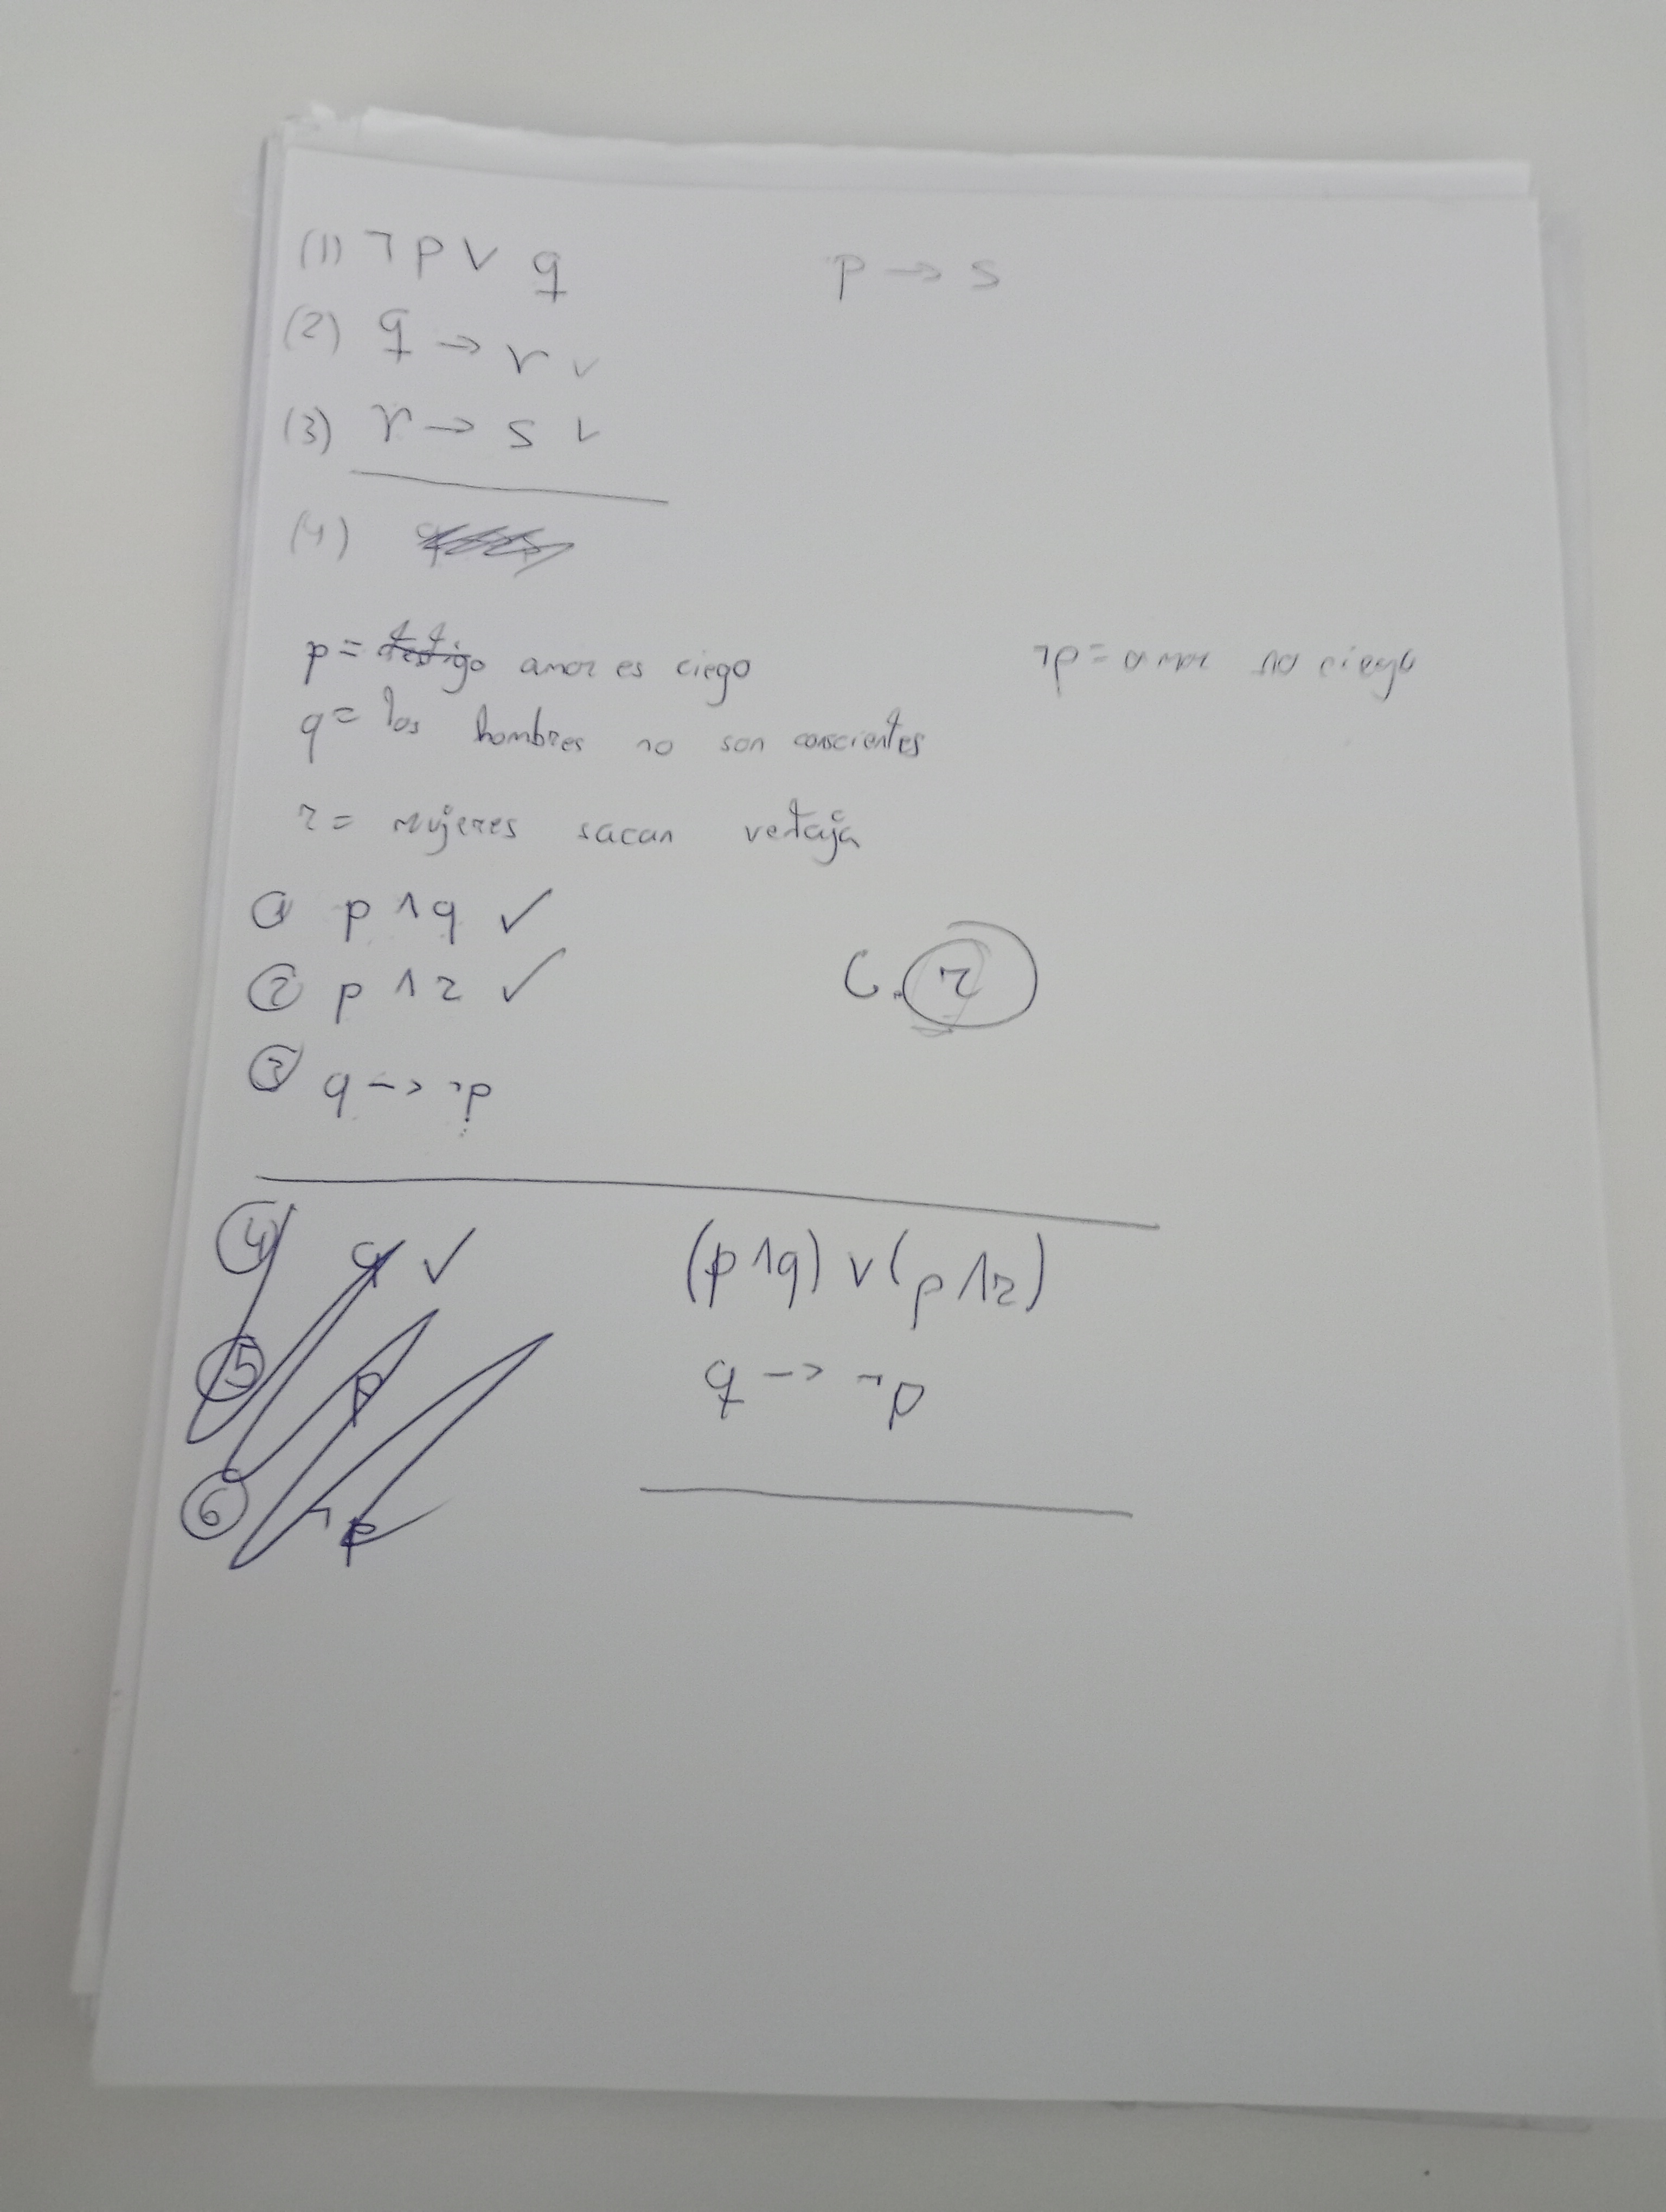 (1) ¬ p ∨ q p → s
(2) q → r ✓
(3) r → s ✓
(4)
p = amor es ciego ¬p = amor no ciego
q = los hombres no son conscientes
r = mujeres sacan vetaja
① p ∧ q ✓
② p ∧ r ✓ C. r
③ q → ¬p
④ q ✓ (p ∧ q) ∨ (p ∧ r)
⑤ p q → ¬p
⑥ ¬p